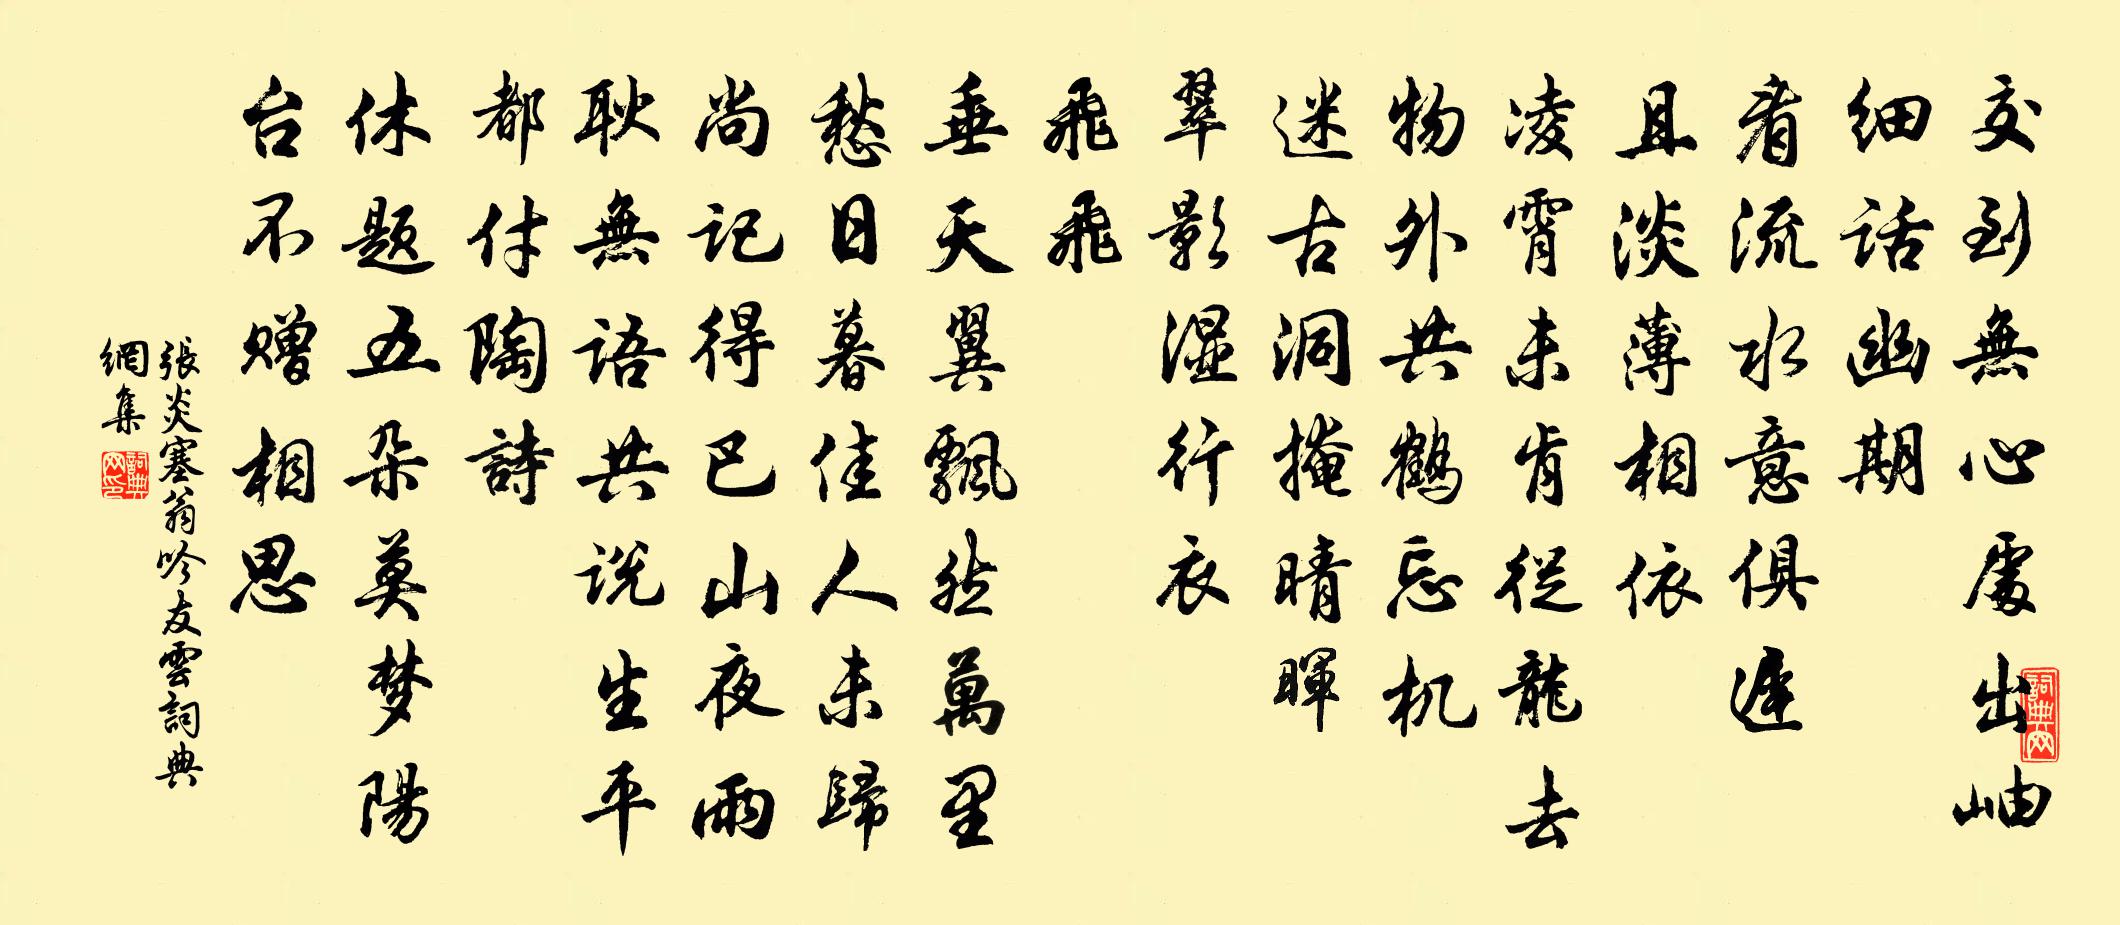 交到無心處出岫
細話幽期
看流水意俱遲
且淡薄相依
凌霄未肯從龍去
物外共鶴忘机
迷古洞掩晴暉
翠影濕行衣
飛飛
垂天翼飄然萬里
愁日暮佳人未歸
尚記得巴山夜雨
耿無語共説生平
都付陶詩
休题五朵莫梦陽
台不赠相思
張炎塞翁吟友雲詞典
網集
詞典网
詞典网